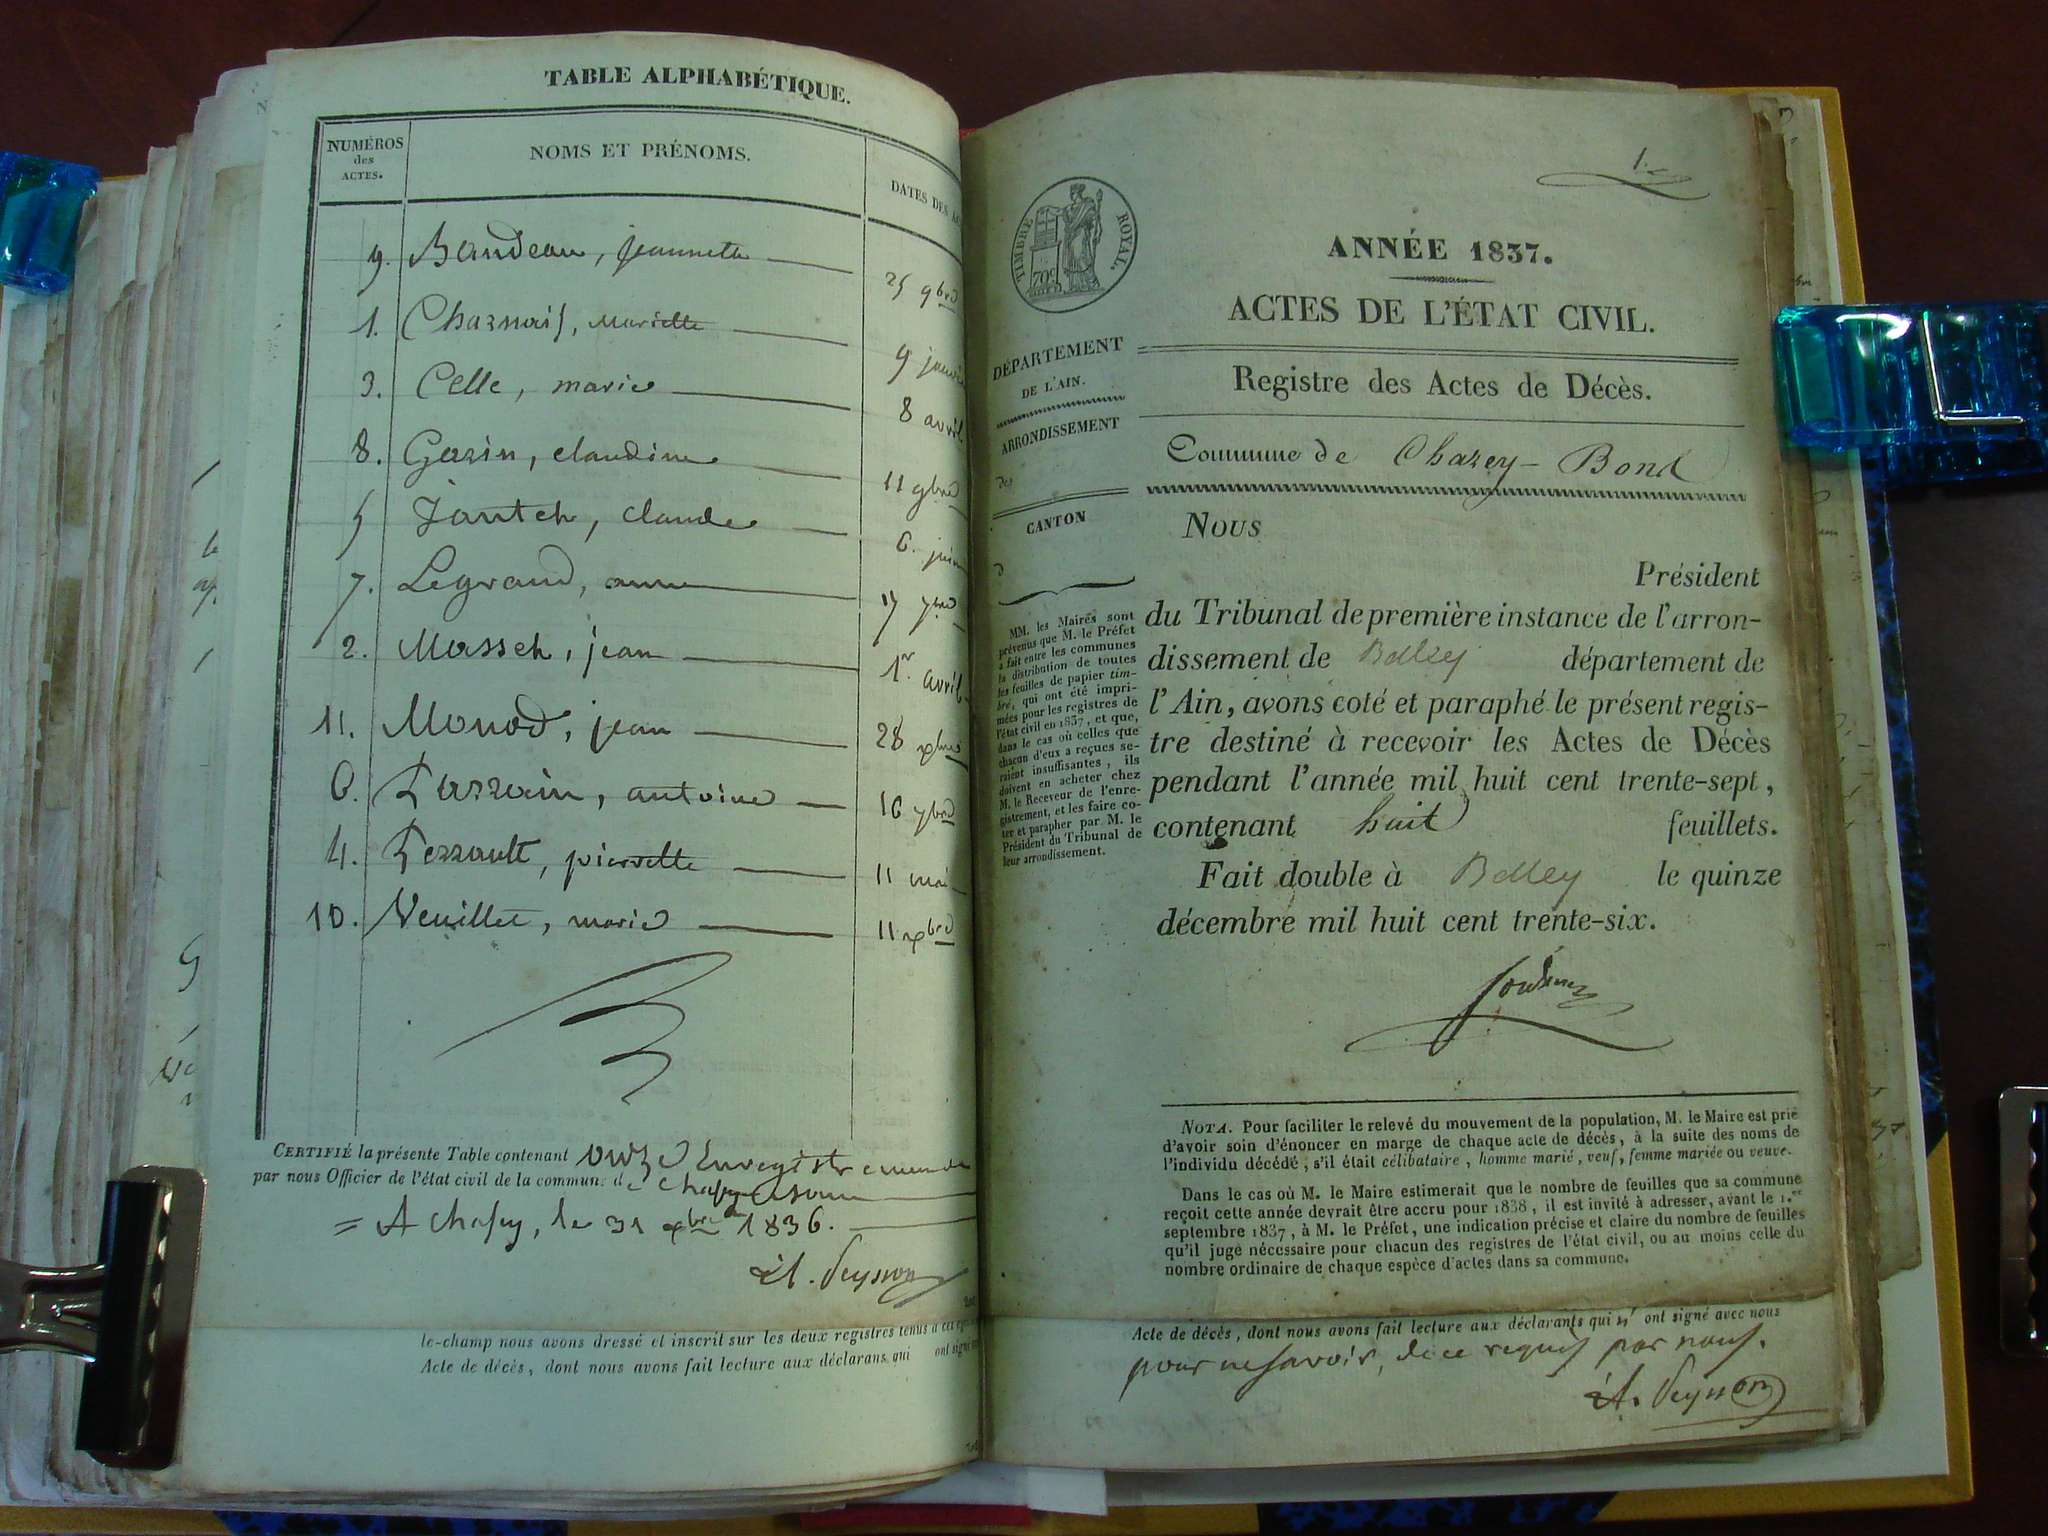 TABLE ALPHABÉTIQUE.
NUMÉROS
des
ACTES.
NOMS ET PRÉNOMS.
DATES DES
9. Bandeau, jeannette 25 9bre
1. Charnais, Mariette 9 janvi
3. Celle, marie 8 avril
8. Garin, claudine 11 9bre
5 Jantet, claude 6. juin
7. Legrand, anne 17 7bre
2. Masset, jean 1er avril
11. Monod, jean 28 xbre
6. Parrain, antoine 16 7bre
4. Perrault, pierrette 11 mai
10. Veuillet, marie 11 xbre
CERTIFIÉ la présente Table contenant onze Enregistrements
par nous Officier de l'état civil de la commune de
= A Chasey, le 31 xbre 1836.
A. Peysson
le-champ nous avons dressé et inscrit sur les deux registres tenus à cet
Acte de décès, dont nous avons fait lecture aux déclarans qui ont signé
1.
TIMBRE ROYAL.
70c
ANNÉE 1837.
ACTES DE L'ÉTAT CIVIL.
DÉPARTEMENT
DE L'AIN.
ARRONDISSEMENT
des
CANTON
d
Registre des Actes de Décès.
Commune de Chazey-Bond
MM. les Maires sont
prévenus que M. le Préfet
a fait entre les communes
la distribution de toutes
les feuilles de papier tim-
bré, qui ont été impri-
mées pour les registres de
l'état civil en 1837, et que,
dans le cas où celles que
chacun d'eux a reçues se-
raient insuffisantes, ils
doivent en acheter chez
M. le Receveur de l'enre-
gistrement, et les faire co-
ter et parapher par M. le
Président du Tribunal de
leur arrondissement.
Nous
Président
du Tribunal de première instance de l'arron-
dissement de Belley département de
l'Ain, avons coté et paraphé le présent regis-
tre destiné à recevoir les Actes de Décès
pendant l'année mil huit cent trente-sept,
contenant huit feuillets.
Fait double à Belley le quinze
décembre mil huit cent trente-six.
NOTA. Pour faciliter le relevé du mouvement de la population, M. le Maire est prié
d'avoir soin d'énoncer en marge de chaque acte de décès, à la suite des noms de
l'individu décédé, s'il était célibataire, homme marié, veuf, femme mariée ou veuve.
Dans le cas où M. le Maire estimerait que le nombre de feuilles que sa commune
reçoit cette année devrait être accru pour 1838, il est invité à adresser, avant le 1.er
septembre 1837, à M. le Préfet, une indication précise et claire du nombre de feuilles
qu'il juge nécessaire pour chacun des registres de l'état civil, ou au moins celle du
nombre ordinaire de chaque espèce d'actes dans sa commune.
Acte de décès, dont nous avons fait lecture aux déclarants qui n' ont signé avec nous
pour ne savoir, de ce requis par nous.
A. Peysson